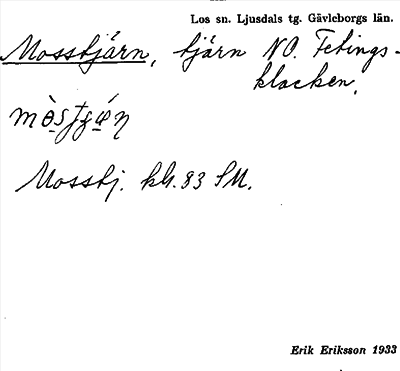 Los sn. Ljusdals tg. Gävleborgs län.
Mosstjärn, tjärn NO. Tetings-
klacken.
Mosstj. kbl. 83 SM.
Erik Eriksson 1933